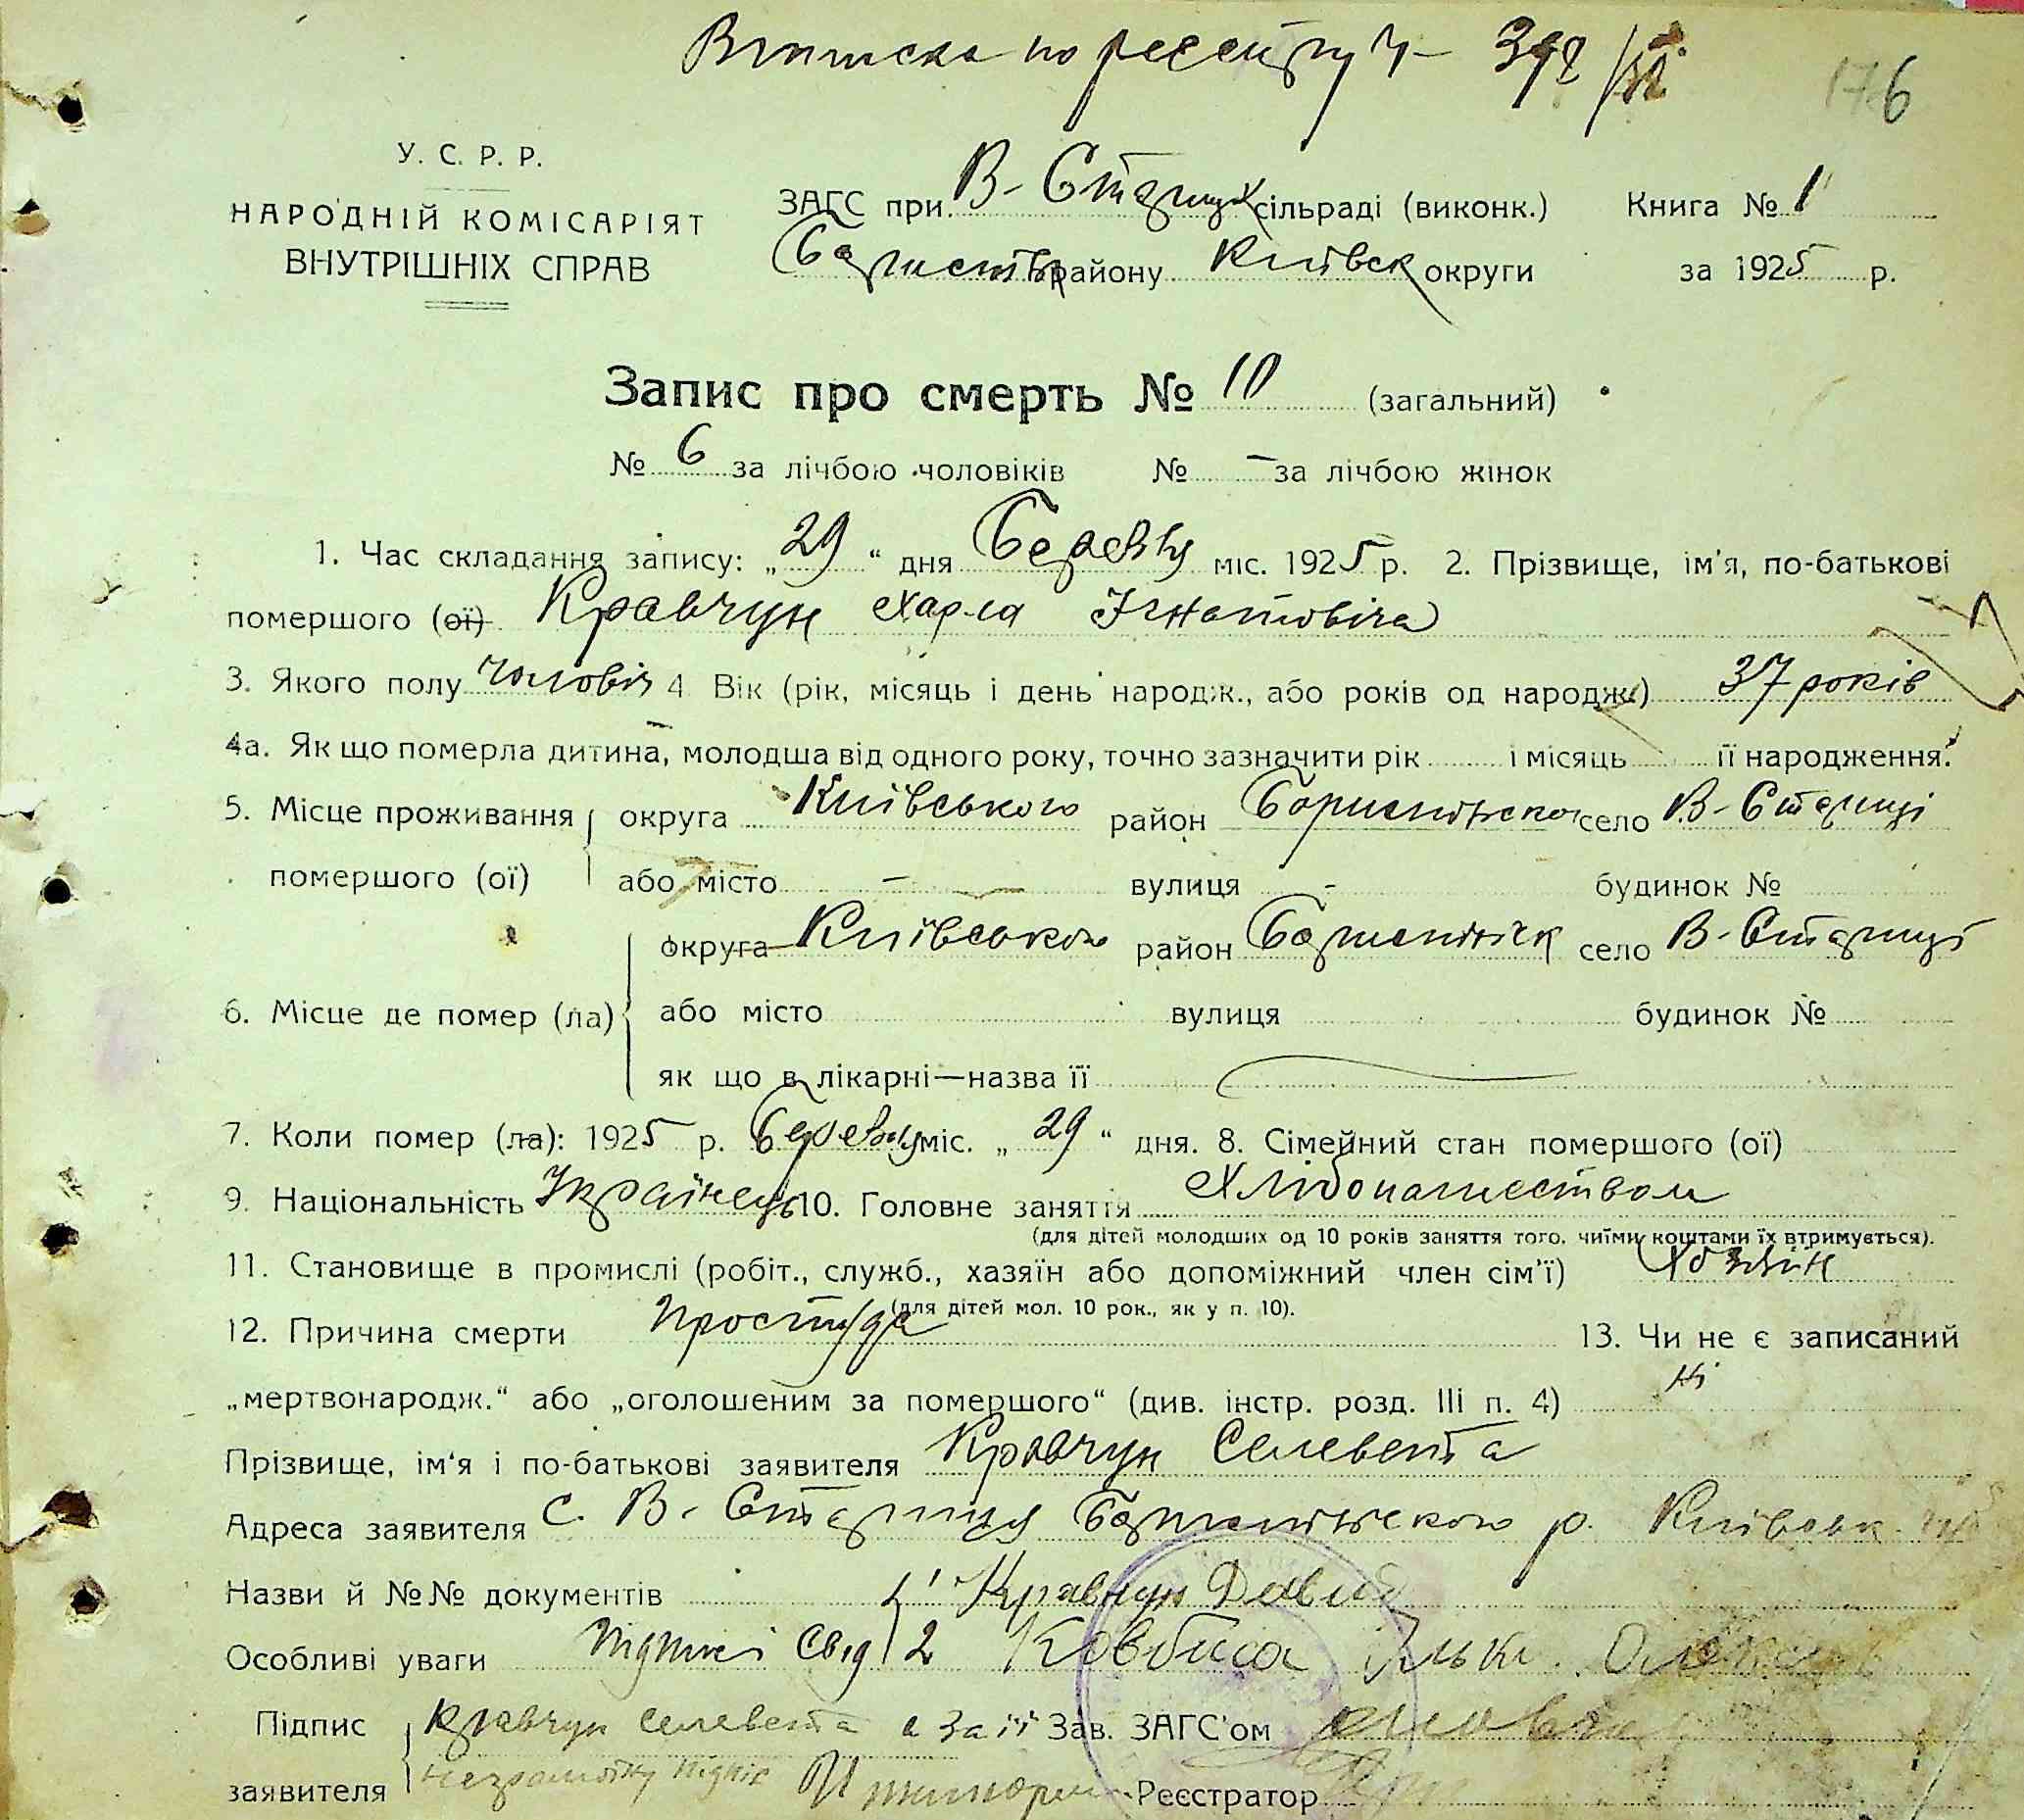 176
У. С. Р. Р.
НАРОДНІЙ КОМІСАРІЯТ
ВНУТРІШНІХ СПРАВ
ЗАГС при В- Стариц сільраді (виконк.) Книга № 1
району Київськ округи за 1925 р.
Запис про смерть № 10 (загальний)
№ 6 за лічбою чоловіків № – за лічбою жінок
1. Час складання запису: „29“ дня Березня міс. 1925 р. 2. Прізвище, ім'я, по-батькові
помершого (ої) Кравчун Харла Ігнатовіча
3. Якого полу чоловіч 4 Вік (рік, місяць і день народж., або років од народж.) 37 років
4а. Як що померла дитина, молодша від одного року, точно зазначити рік і місяць її народження.
5. Місце проживання округа Київського район село В- Стариці
помершого (ої) або місто – вулиця - будинок №
округа Київського район село В- Стариці
6. Місце де помер (ла) або місто вулиця будинок №
як що в лікарні—назва її
7. Коли помер (ла): 1925 р. Березня міс. „29“ дня. 8. Сімейний стан помершого (ої)
9. Національність Українець 10. Головне заняття Хлібопашеством
(для дітей молодших од 10 років заняття того, чиїми коштами їх втримується).
11. Становище в промислі (робіт., служб., хазяїн або допоміжний член сім'ї) Хозяін
(для дітей мол. 10 рок., як у п. 10).
12. Причина смерти простуда 13. Чи не є записаний
„мертвонародж.“ або „оголошеним за помершого“ (див. інстр. розд. III п. 4) ні
Прізвище, ім'я і по-батькові заявителя Кравчун Селевеста
Адреса заявителя с. В- Стариця р. Київськ.
Назви й №№ документів 1 Кравчун Давид
Особливі уваги Підписі Свід 2 Ковбаса
Підпис Кравчун Селевеста а за її Зав. ЗАГС'ом
заявителя неграмотну підпис Реєстратор